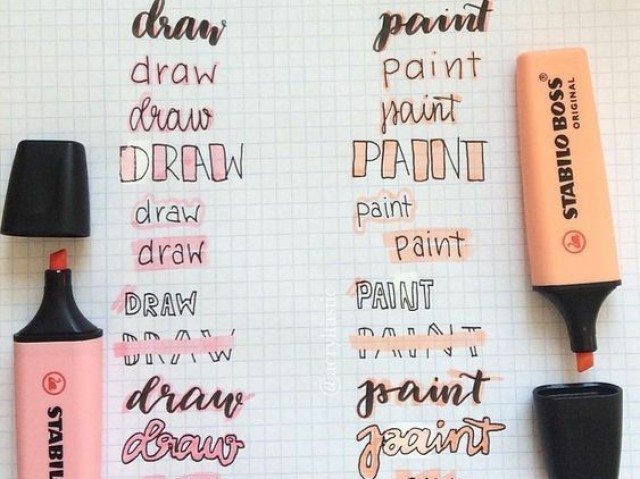 draw
draw
draw
DRAW
draw
draw
DRAW
DRAW
draw
draw
paint
paint
paint
PAINT
paint
paint
PAINT
PAINT
paint
paint
STABILO BOSS®
ORIGINAL
STABIL